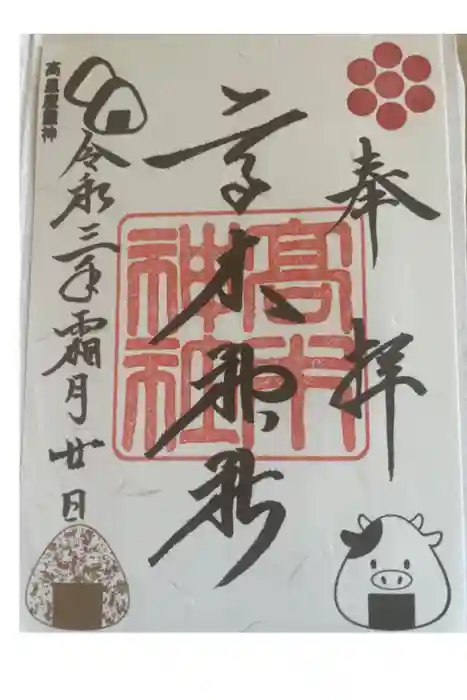 奉拝
高木神社
高木神社
高皇産靈神
令和三年霜月廿日